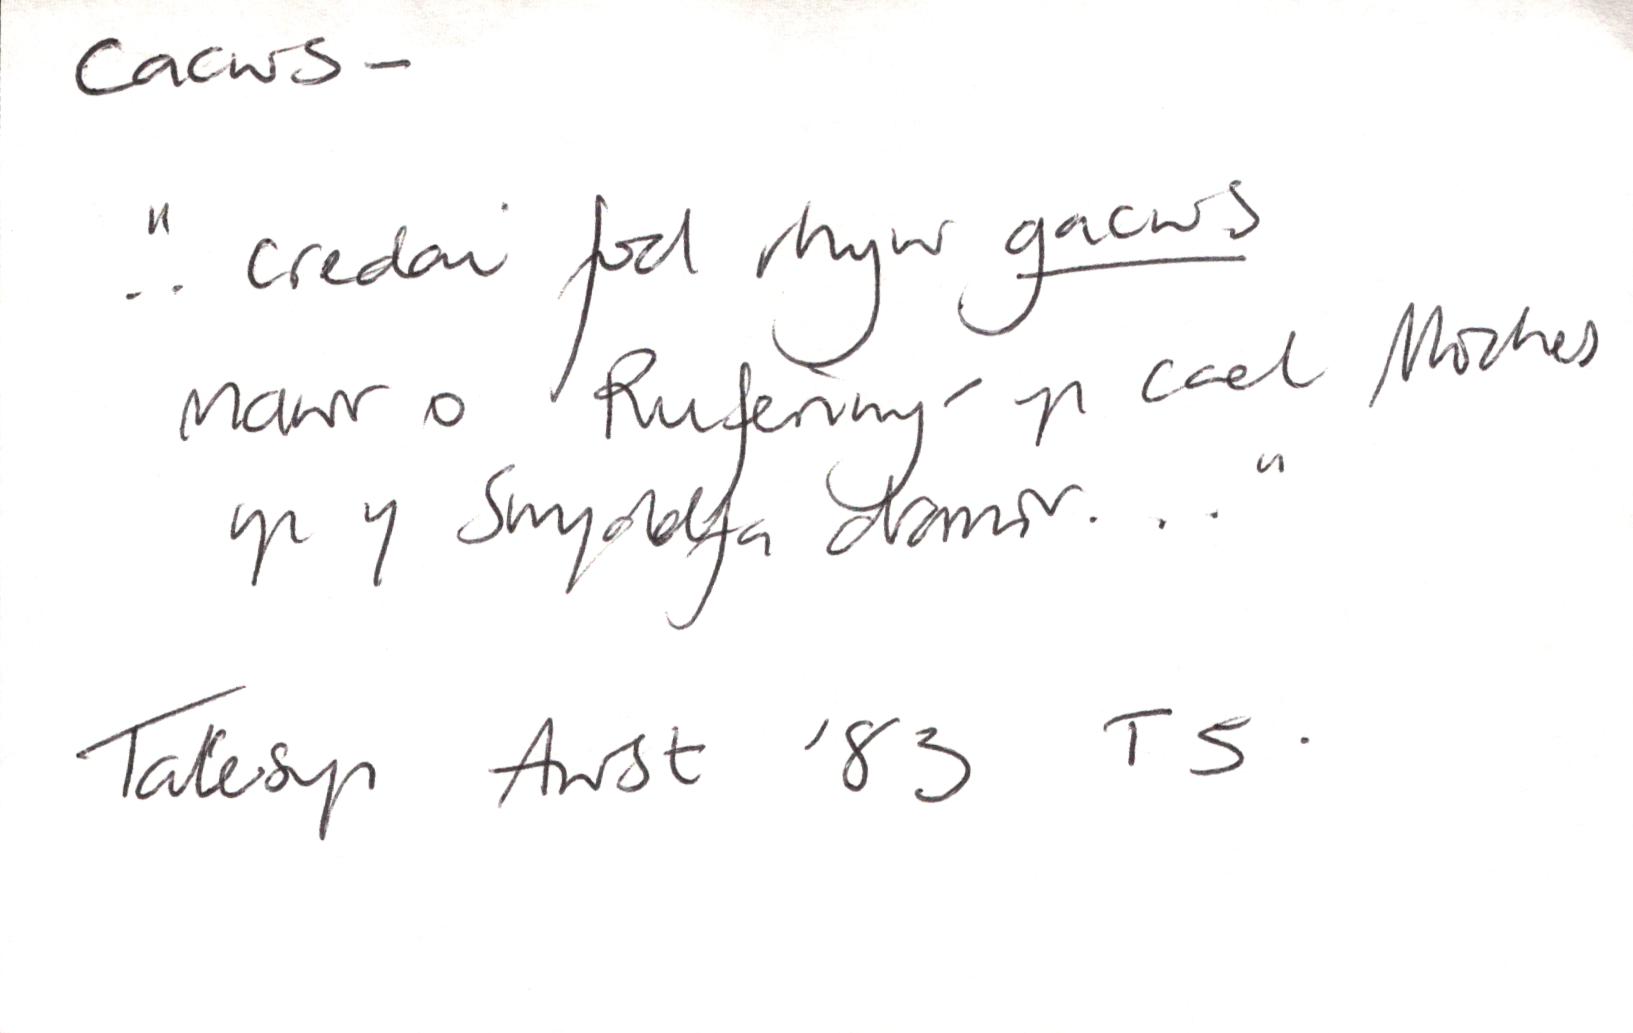 Cacws -
".. credai fod rhyw gacws
mawr o Rufeiniwr yn cael lloches
yn y Swyddfa dramor. . ."
Taliesyn Awst '83 T5.